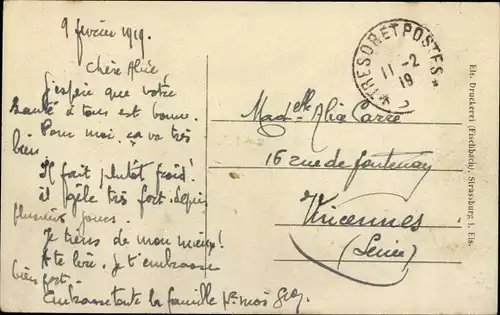 9 février 1919.
Chère Alice
J'espère que votre
santé à tous est bonne.
Pour moi, ça va très
bien
Il fait plutôt froid!
il gèle très fort depuis
plusieurs jours.
Je tiens de mon mieux!
A te lire. Je t'embrasse
bien fort.
Embrasse toute la famille pr moi
TRESOR ET POSTES
11-2
19
Madelle Alice Carré
16 rue de Fontenay
Vincennes
(Seine)
Els. Druckerei (Fischbach), Strassburg i. Els.